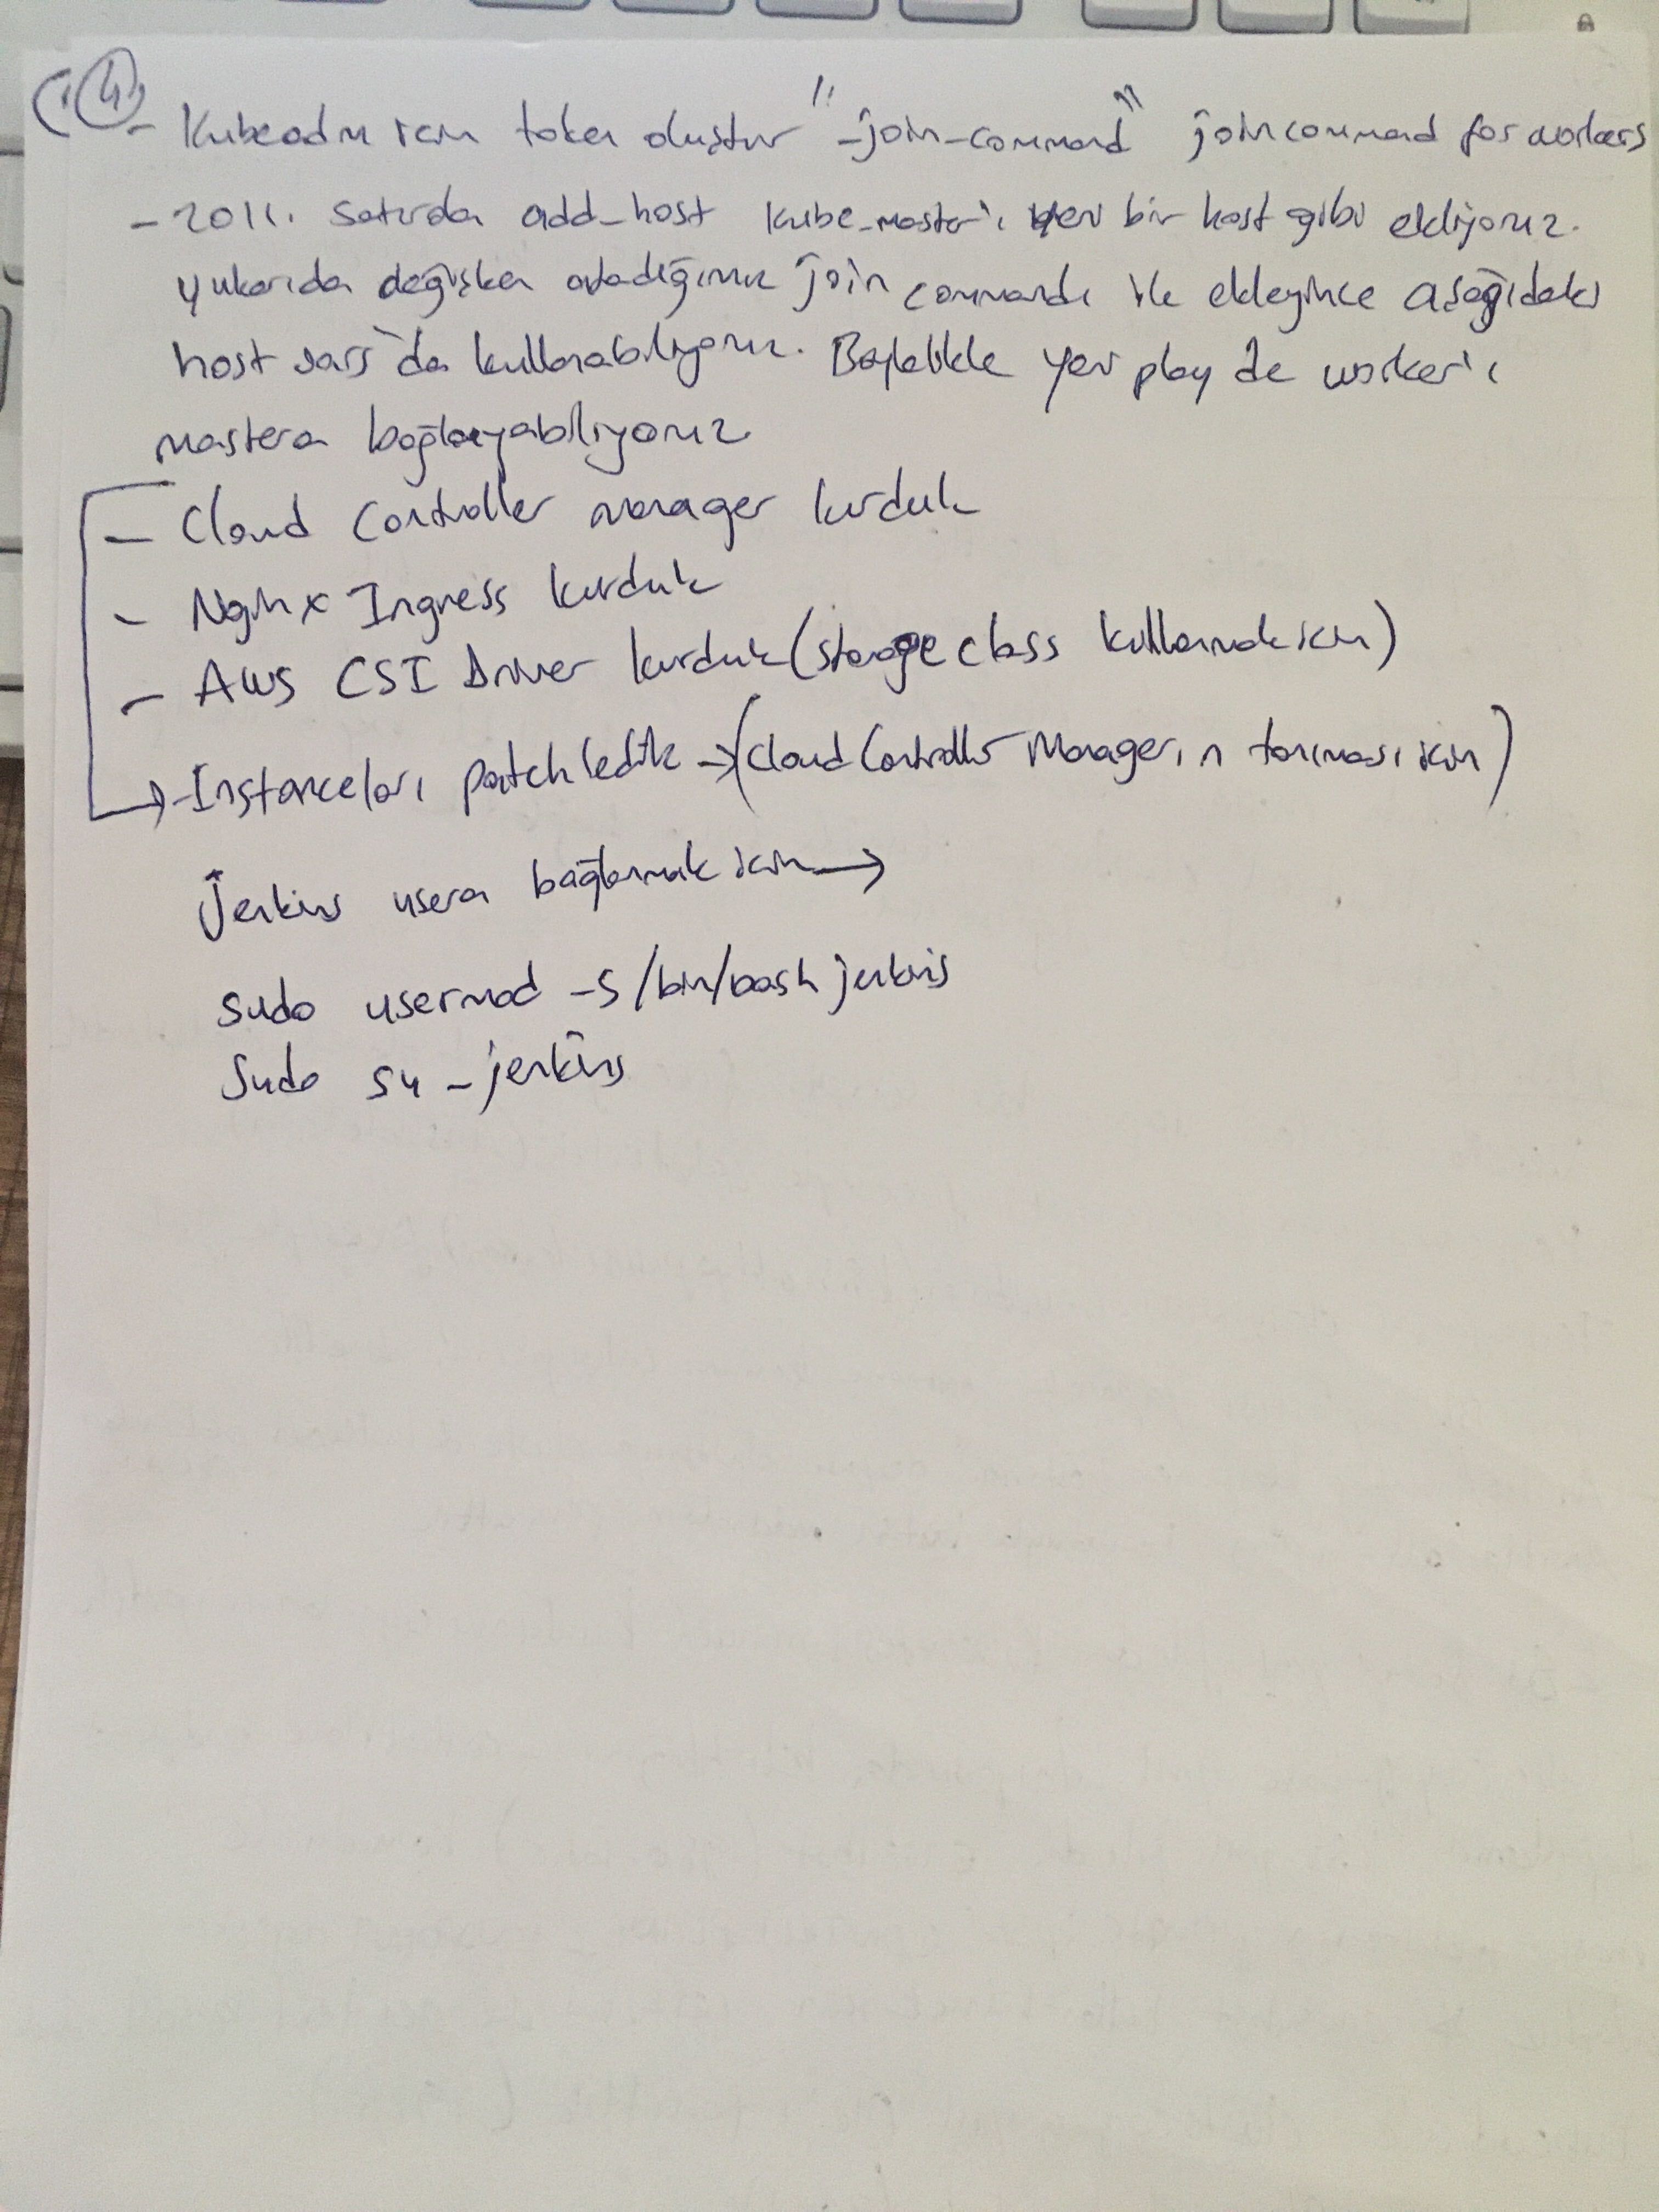 4
- Kubeadm icin token oluştur "-join-command" join command for workers
- 201. satırda add_host kube-master'ı yeni bir host gibi ekliyoruz.
yukarıda değişken atadığımız join commandı ile ekleyince aşağıdaki
host vars'da kullanabiliyoruz. Böylelikle yeni play de worker'ı
mastera bağlayabiliyoruz
- Cloud Controller manager kurduk
- Nginx Ingress kurduk
- AWS CSI Driver kurduk (storage class kullanmak icin)
→ - Instanceları patchledik → (Cloud Controller Manager,ın tanıması icin)
Jenkins usera bağlanmak icin →
sudo usermod -s /bin/bash jenkins
Sudo su - jenkins